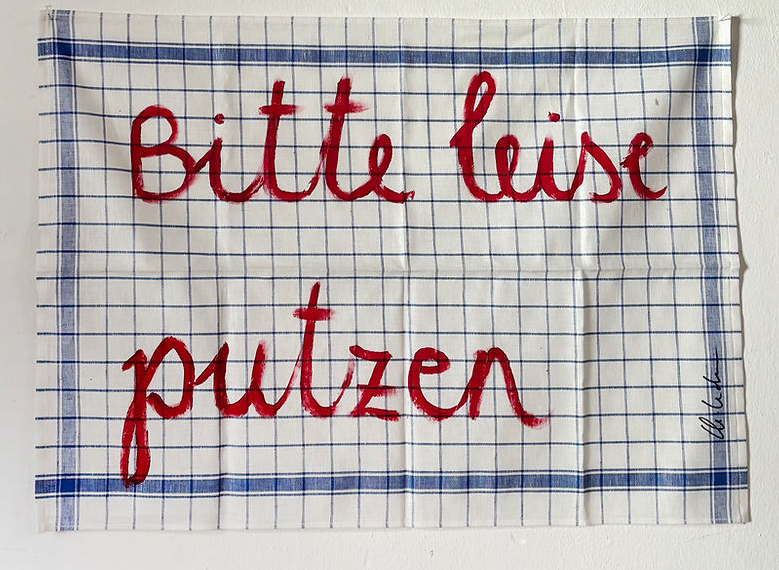 Bitte leise
putzen